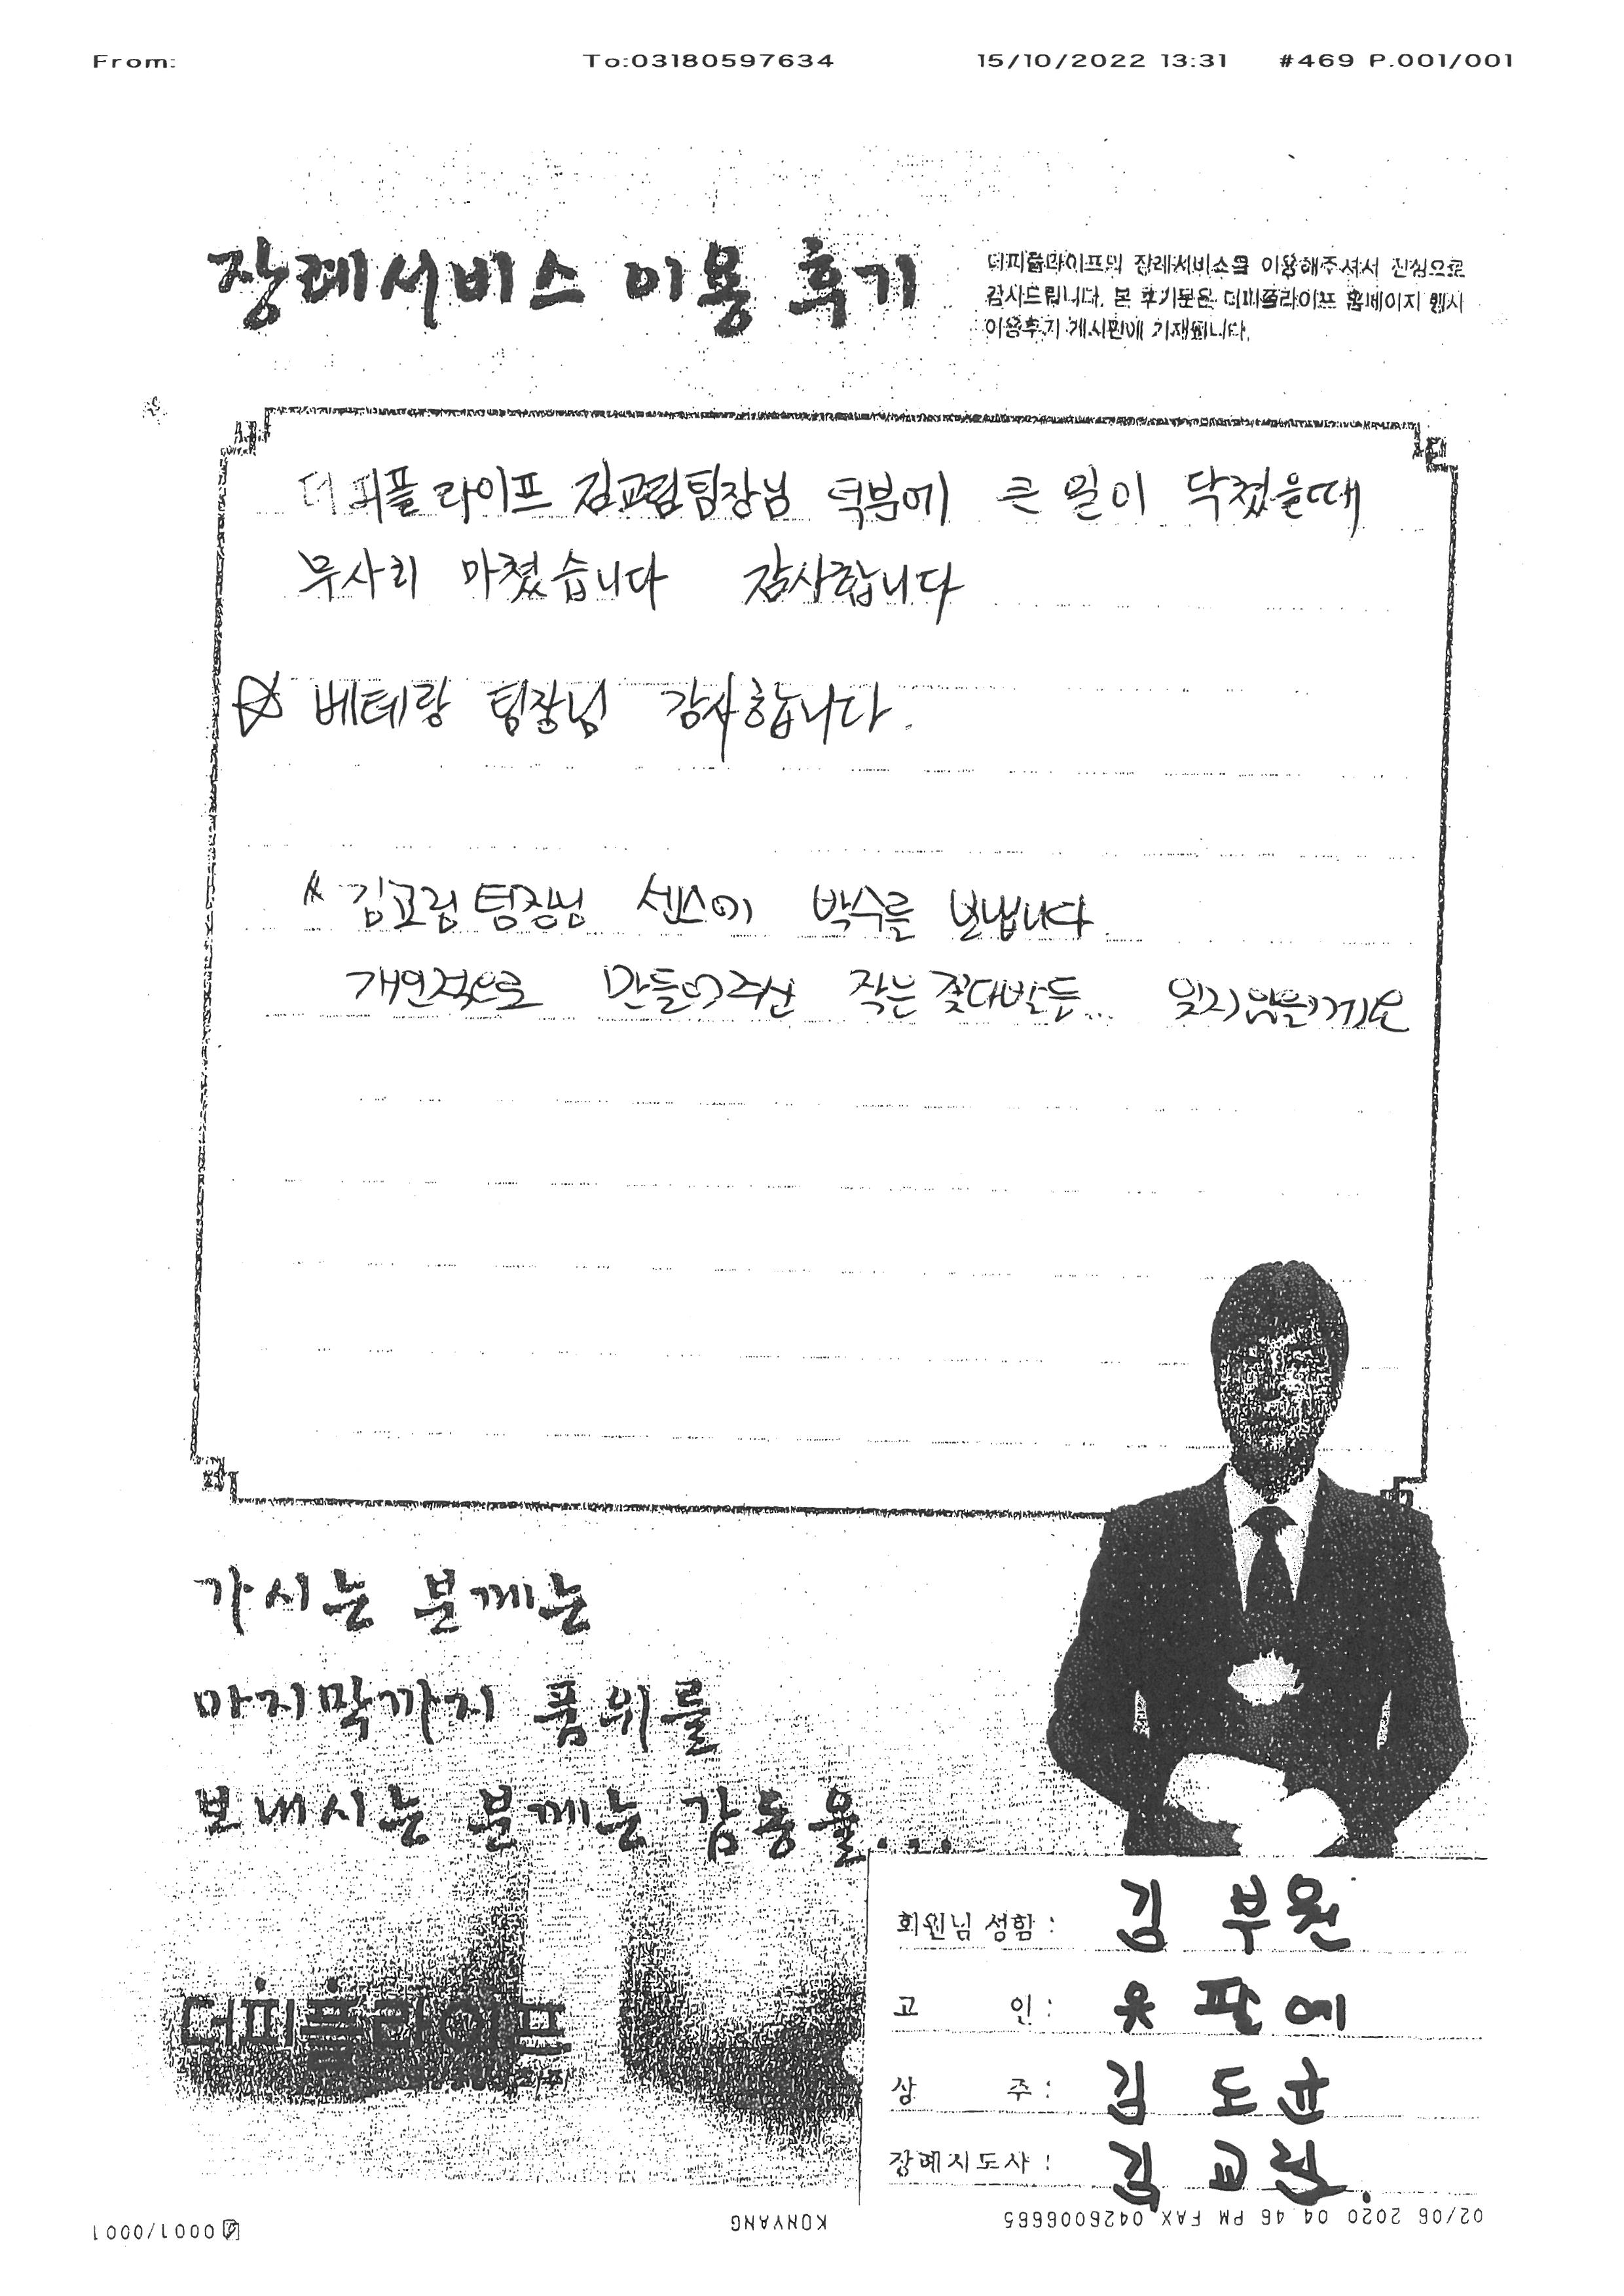 From: To:03180597634 15/10/2022 13:31 #469 P.001/001
장례서비스 이용 후기
더피플라이프의 장례서비스를 이용해주셔서 진심으로
감사드립니다. 본 후기문은 더피플라이프 홈페이지 행사
이용후기 게시판에 기재됩니다.
더피플라이프 김교림팀장님 덕분에 큰 일이 닥쳤을때
무사히 마쳤습니다 감사합니다
베테랑 팀장님 감사합니다.
김교림팀장님 센스에 박수를 보냅니다
개인적으로 만들어주신 작은 꽃다발들... 잊지않을게요
가시는 분께는
마지막까지 품위를
보내시는 분께는 감동을...
더피플라이프
회원님 성함 : 김부원
고 인 : 윳팔예
상 주 : 김도균
장례지도사 : 김교림.
02/06 2020 04 46 PM FAX 0426006665 KONYANG 0001/0001